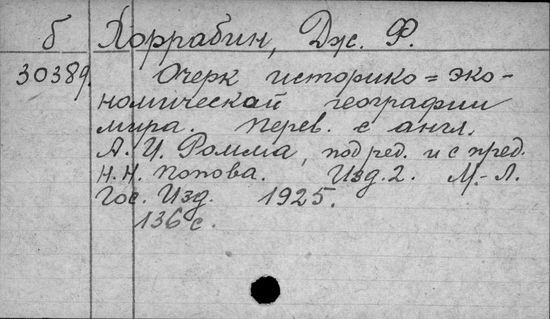 б Хоррабин, Дж. Ф.
30389. Очерк историко=эко-
номической географии
мира. Перев. с англ.
А. И. Ромма, под ред. и с пред.
Н. Н. Попова. Изд. 2. М.-Л.
Гос. Изд. 1925.
136 с.